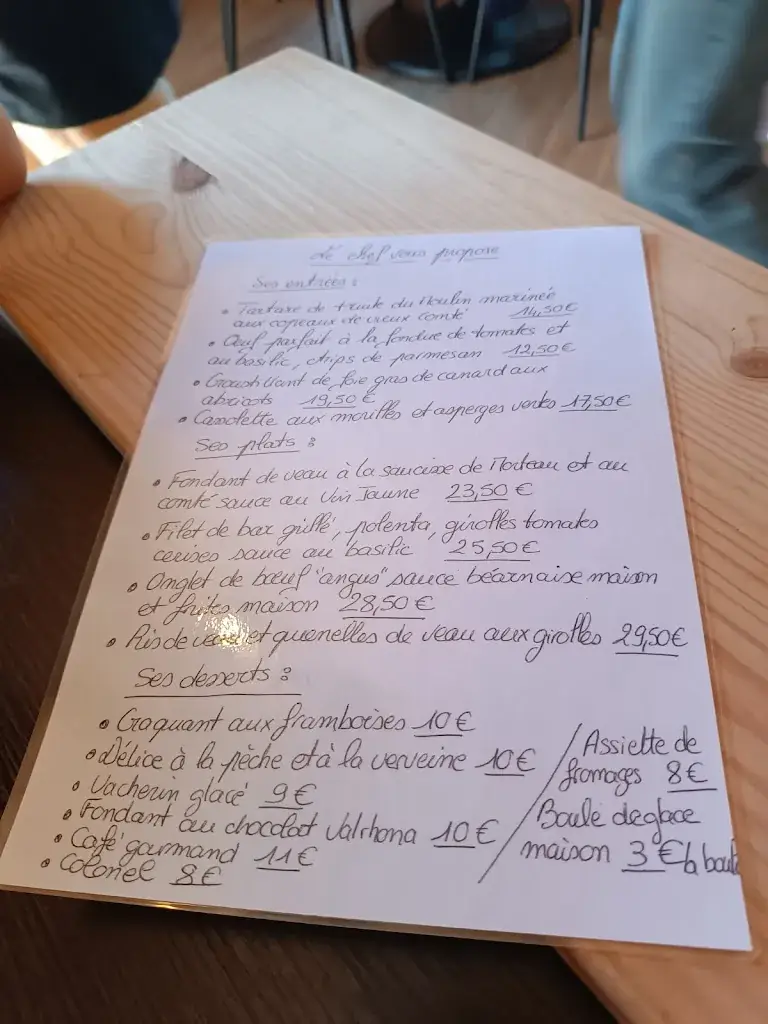 Le chef vous propose
Ses entrées :
• Tartare de truite du Moulin marinée
aux copeaux de vieux comté 14,50€
• Œuf parfait à la fondue de tomates et
au basilic, chips de parmesan 12,50€
• Croustillant de foie gras de canard aux
abricots 19,50€
• Cassolette aux morilles et asperges vertes 17,50€
Ses plats :
• Fondant de veau à la saucisse de Morteau et au
comté sauce au Vin Jaune 23,50€
• Filet de bar grillé, polenta, girolles tomates
cerises sauce au basilic 25,50€
• Onglet de bœuf "angus" sauce béarnaise maison
et frites maison 28,50€
• Ris de veau et quenelles de veau aux girolles 29,50€
Ses desserts :
• Craquant aux framboises 10€
• Délice à la pêche et à la verveine 10€
• Vacherin glacé 9€
• Fondant au chocolat Valrhona 10€
• Café gourmand 11€
• Colonel 8€
Assiette de
fromages 8€
Boule de glace
maison 3€ la boule